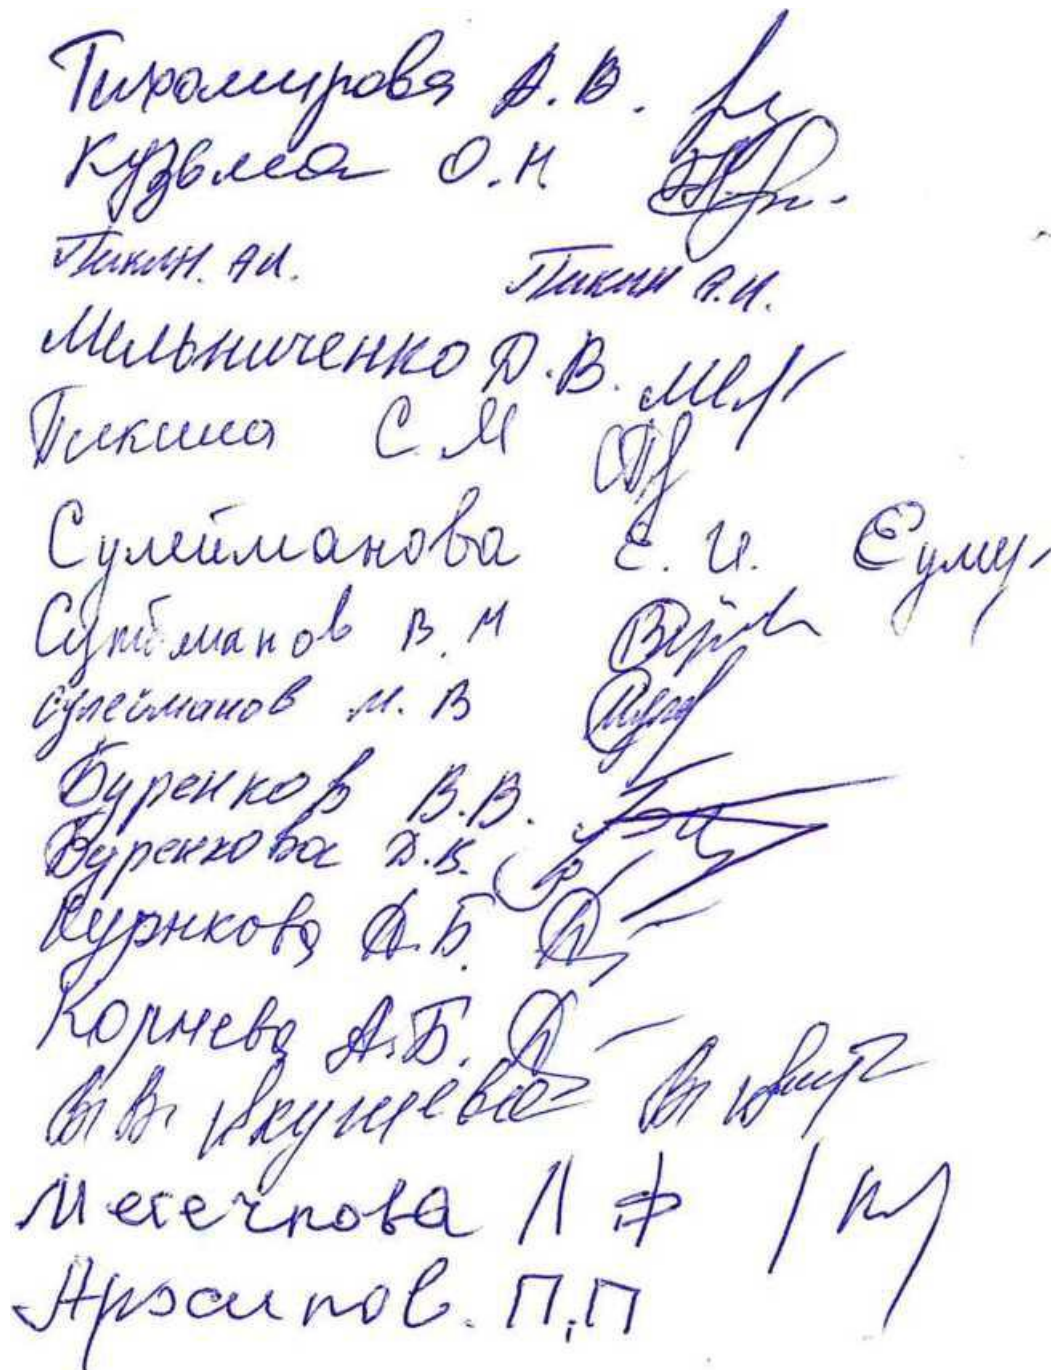 Тихомирова А.В.
Кузьма О.Н.
Пикин. А.И. Пикин А.И.
Мельниченко Д.В. Мел
Пикина С.М
Сулейманова Е.И.
Сулейманов В.И
Сулейманов М.В
Буренков В.В.
Буренкова Д.В.
А.Б.
Корнева А.Б.
В.В. Якушева
Л Ф
Архипов. П.П